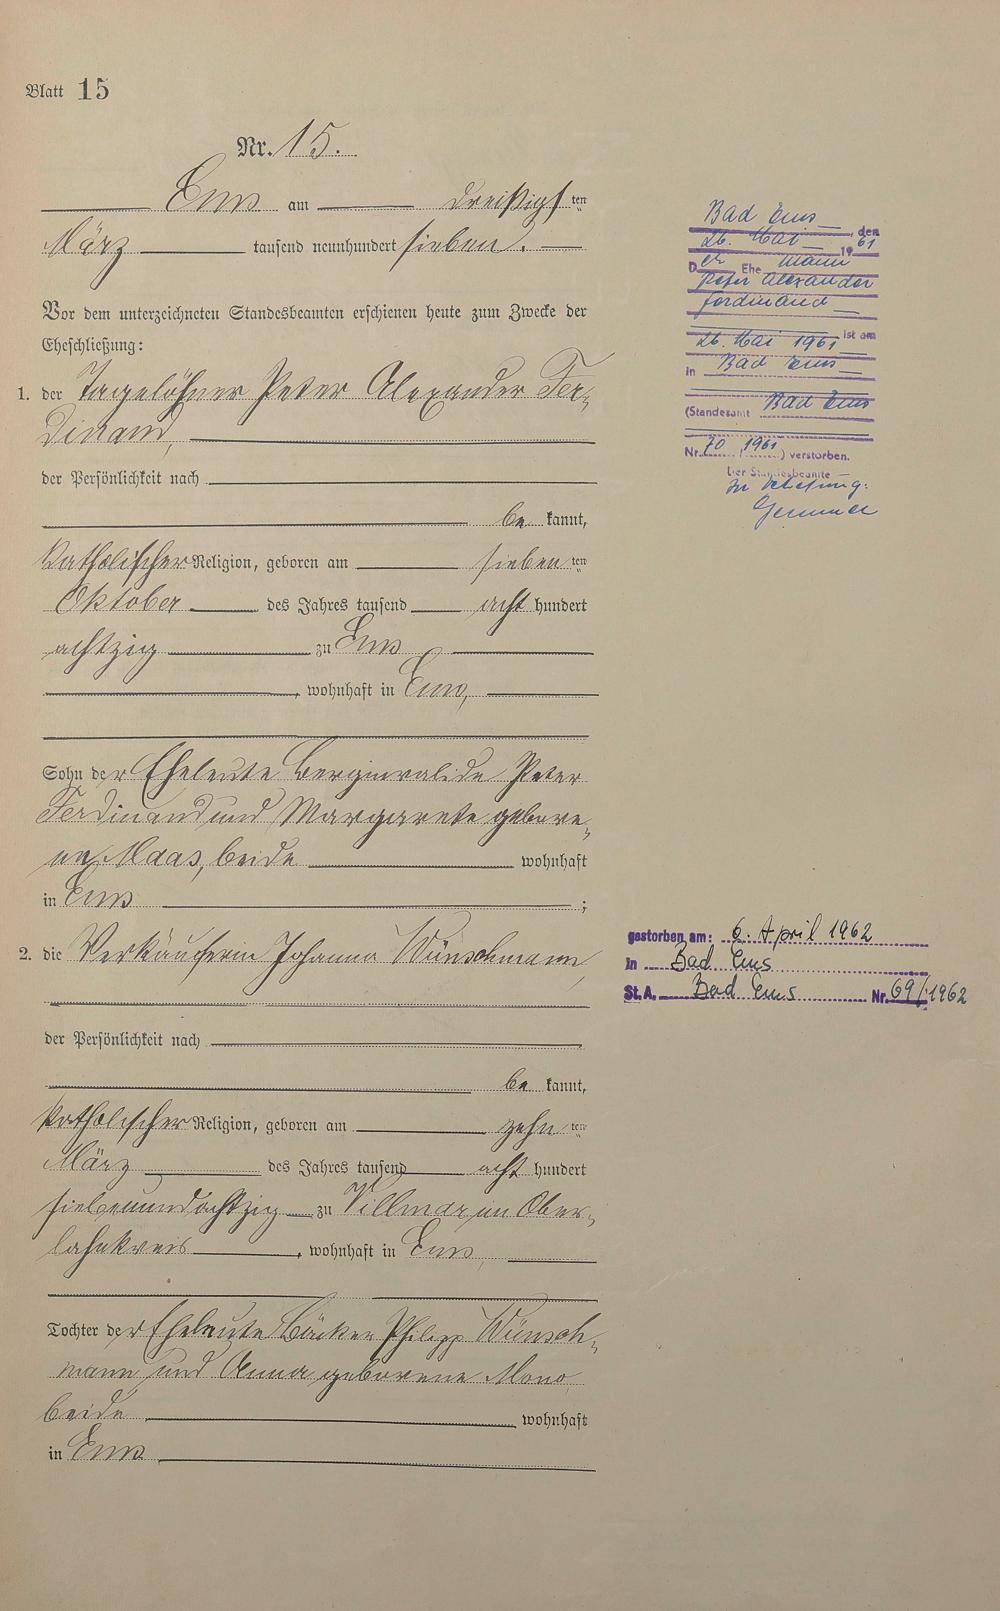 Blatt 15
Nr. 15.
Ems am dreißigsten
März tausend neunhundert sieben.
Vor dem unterzeichneten Standesbeamten erschienen heute zum Zwecke der
Eheschließung:
1. der Tagelöhner Peter Alexander Fer-
dinand,
der Persönlichkeit nach
be kannt,
katholischer Religion, geboren am siebenten
Oktober des Jahres tausend acht hundert
achtzig zu Ems
, wohnhaft in Ems,
Sohn der Eheleute Berginvalide Peter
Ferdinand und Margarete gebore-
ne Maas, beide wohnhaft
in Ems ;
2. die Verkäuferin Johanna Wünschmann,
der Persönlichkeit nach
be kannt,
katholischer Religion, geboren am zehnten
März des Jahres tausend acht hundert
siebenundachtzig zu Villmar im Ober-
lahnkreis, wohnhaft in Ems,
Tochter der Eheleute Bäcker Philipp Wünsch-
mann und Anna geborene
beide wohnhaft
in Ems
Bad Ems, den
26. Mai 1961
Der Ehemann
Peter Alexander
Ferdinand
ist am
26. Mai 1961
in Bad Ems
(Standesamt Bad Ems
Nr. 70 / 1961) verstorben.
Der Standesbeamte
In Vertretung:
gestorben am: 6. April 1962
in Bad Ems
St.A. Bad Ems Nr. 69/1962